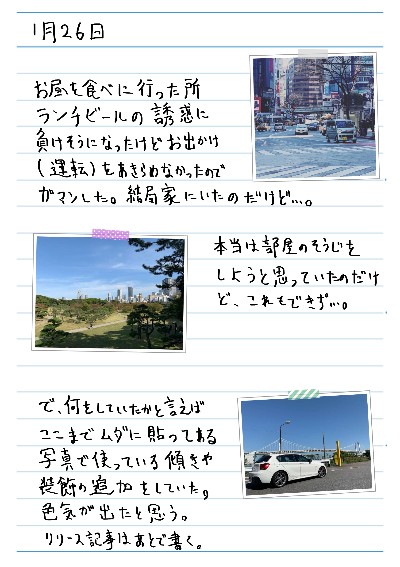 1月26日
お昼を食べに行った所
ランチビールの誘惑に
負けそうになったけどお出かけ
(運転)をあきらめなかったので
ガマンした。結局家にいたのだけど…。
本当は部屋のそうじを
しようと思っていたのだけ
ど、これもできず…。
で、何をしていたかと言えば
ここまでムダに貼ってある
写真で使っている傾きや
装飾の追加をしていた。
色気が出たと思う。
リリース記事はあとで書く。